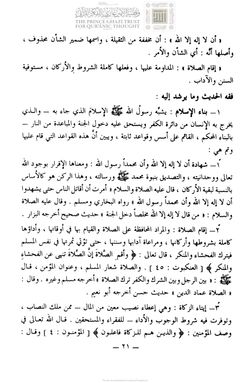 THE PRINCE GHAZI TRUST
FOR QUR'ANIC THOUGHT
« أن لا إله إلا الله » : أن مخففة من الثقيلة ، واسمها ضمير الشأن محذوف ،
وأصلها أنَّه : أي الشأن والأمر .
« إقام الصلاة » : المداومة عليها ، وفعلها كاملة الشروط والأركان ، مستوفية
السنن والآداب .
فقه الحديث وما يرشد إليه :
١ – بناء الإسلام : يشبِّه رسول الله ﷺ الإسلام الذي جاء به – والذي
يخرج به الإنسان من دائرة الكفر ويستحق عليه دخول الجنة والمباعدة من النار –
بالبناء المحكم ، القائم على أسس وقواعد ثابتة ، ويبين أنَّ هذه القواعد التي قام عليها
وتم هي :
١ – شهادة أن لا إله إلا الله وأن محمداً رسول الله : ومعناها الإقرار بوجود الله
تعالى ووحدانيته ، والتصديق بنبوة محمد ﷺ ورسالته ، وهذا الركن هو كالأساس
بالنسبة لبقية الأركان ، قال عليه الصلاة والسلام « أمرت أن أقاتل الناس حتى يشهدوا
أن لا إله إلا الله وأن محمداً رسول الله » رواه البخاري ومسلم . وقال عليه الصلاة
والسلام : « من قال لا إله إلا الله مخلصاً دخل الجنة » حديث صحيح أخرجه البزار .
٢ – إقام الصلاة : والمراد المحافظة على الصلاة والقيام بها في أوقاتها ، وأداؤها
كاملة بشروطها وأركانها ، ومراعاة آدابها وسننها ، حتى تؤتي ثمرتها في نفس المسلم
فيترك الفحشاء والمنكر ، قال تعالى : ﴿ وأقم الصَّلاة إنَّ الصلاة تنهى عن الفحشاء
والمنكر ﴾ [ العنكبوت : ٤٥ ] . والصلاة شعار المسلم ، وعنوان المؤمن ، قال
ﷺ : « بين الرجل وبين الشرك والكفر ترك الصلاة » أخرجه مسلم وغيره . وقال :
« الصلاة عماد الدين » حديث حسن أخرجه أبو نعيم .
٣ – إيتاء الزكاة : وهي إعطاء نصيب معين من المال – ممن ملك النصاب ،
وتوفرت فيه شروط الوجوب والأداء – للفقراء والمستحقين . قال الله تعالى في
وصف المؤمنين : ﴿ والذين هم للزكاة فاعلون ﴾ [ المؤمنون : ٤ ] وقال :
– ٢١ –